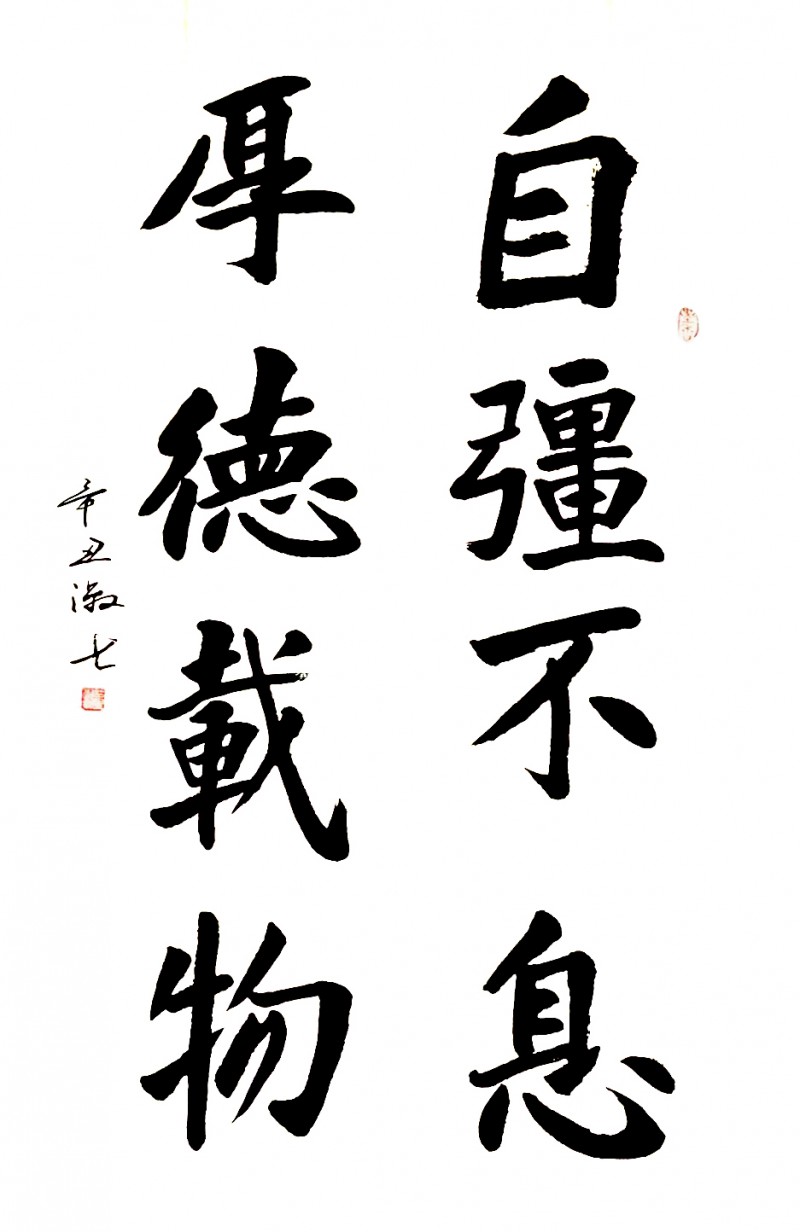 自彊不息
厚德載物
辛丑淑七